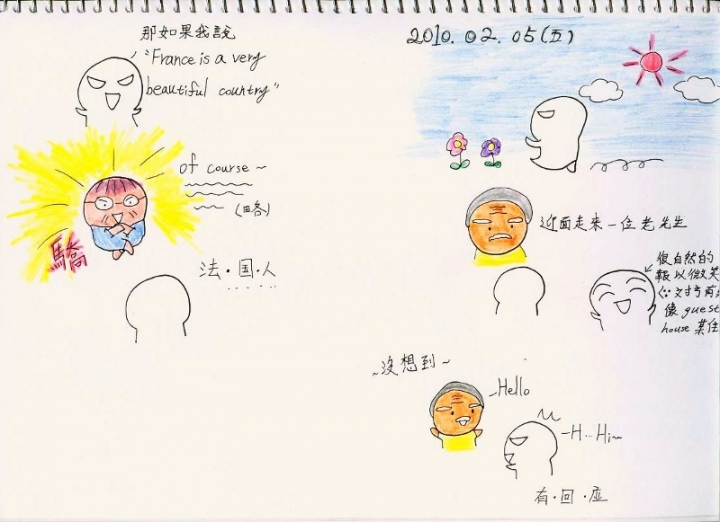 那如果我說
"France is a very
beautiful country"
of course~
(略)
驕
法·国·人
2010.02.05(五)
迎面走來一位老先生
很自然的
報以微笑
(∵対方有点
像 guest
house 某住
~沒想到~
~Hello
~H...Hi~
有·回·应